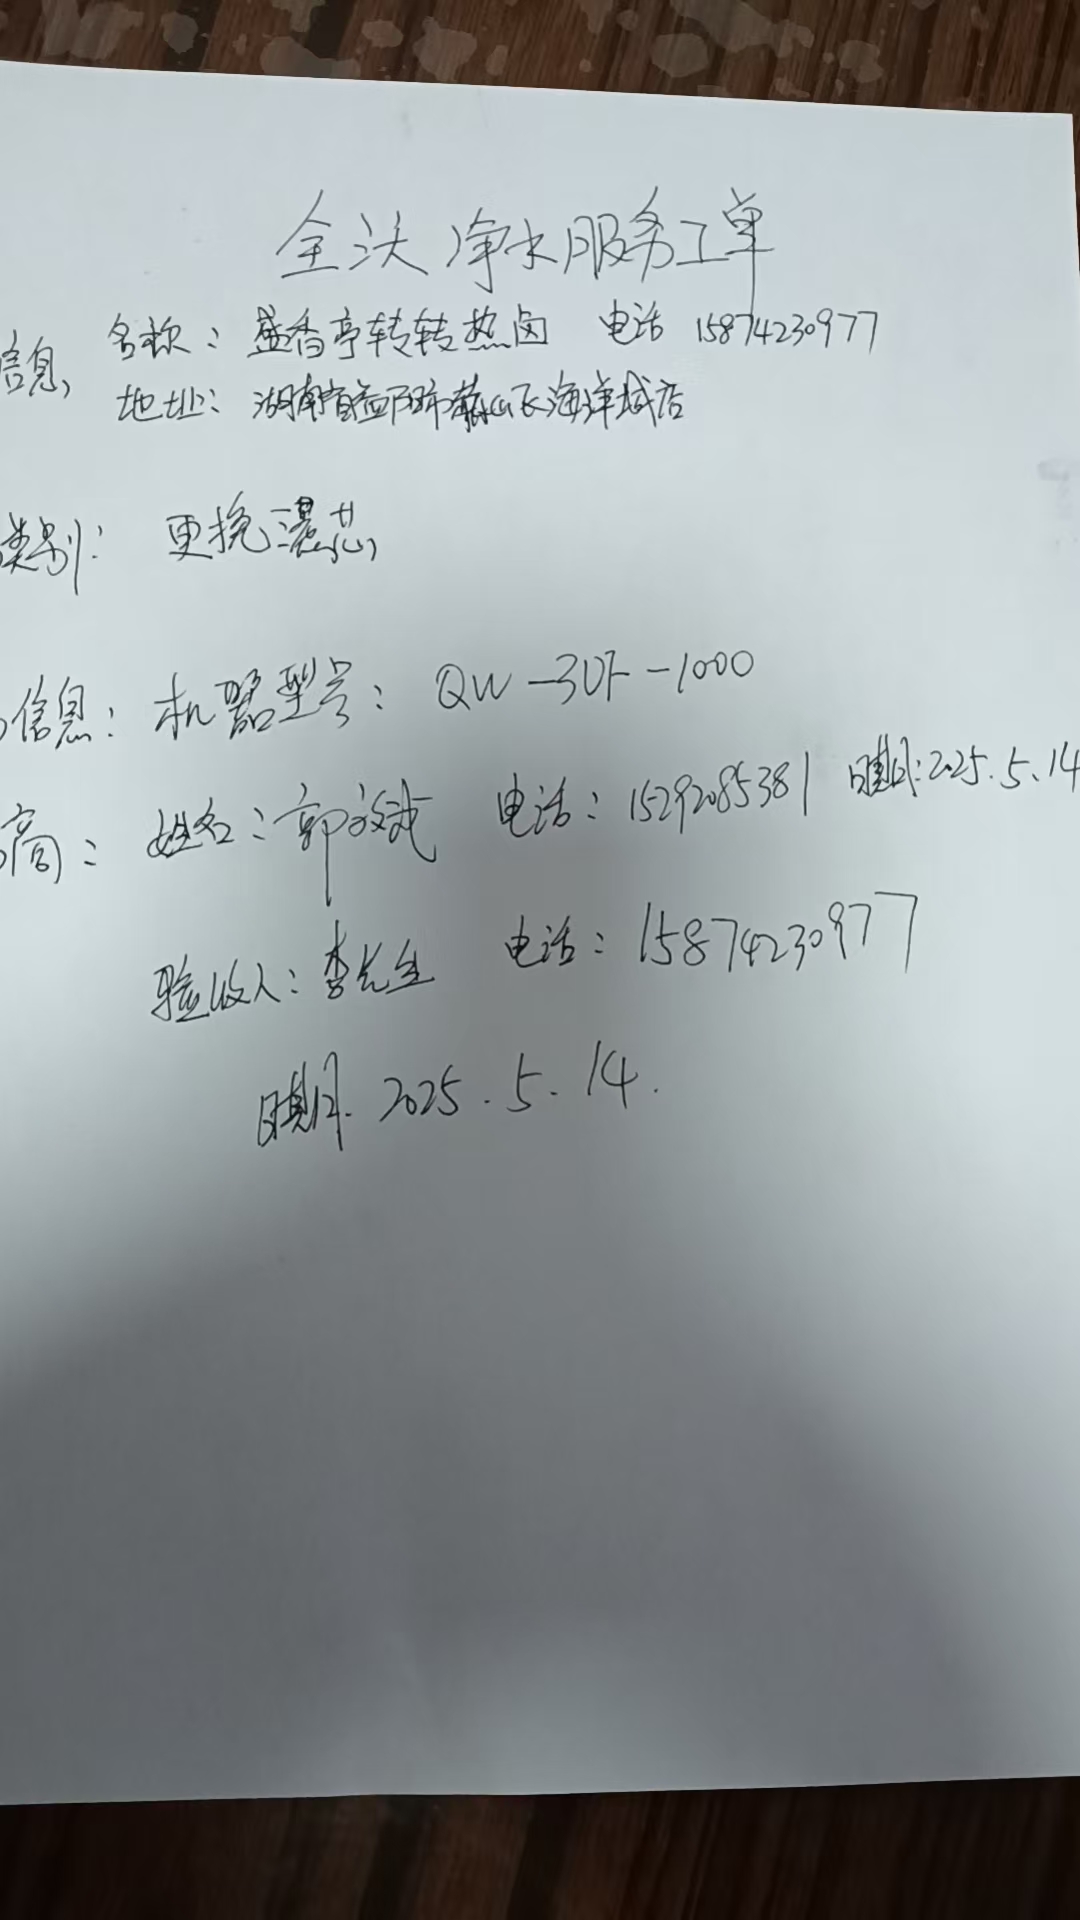 全沃净水服务工单
信息, 名称：盛香亭转转热卤 电话 15874230977
地址：湖南省益阳市 海洋城店
类别：更换滤芯
信息：机器型号：QW-3UF-1000
商：姓名：郭 电话：15292085381 日期：2025.5.14
验收人：李先生 电话：15874230977
日期. 2025.5.14.